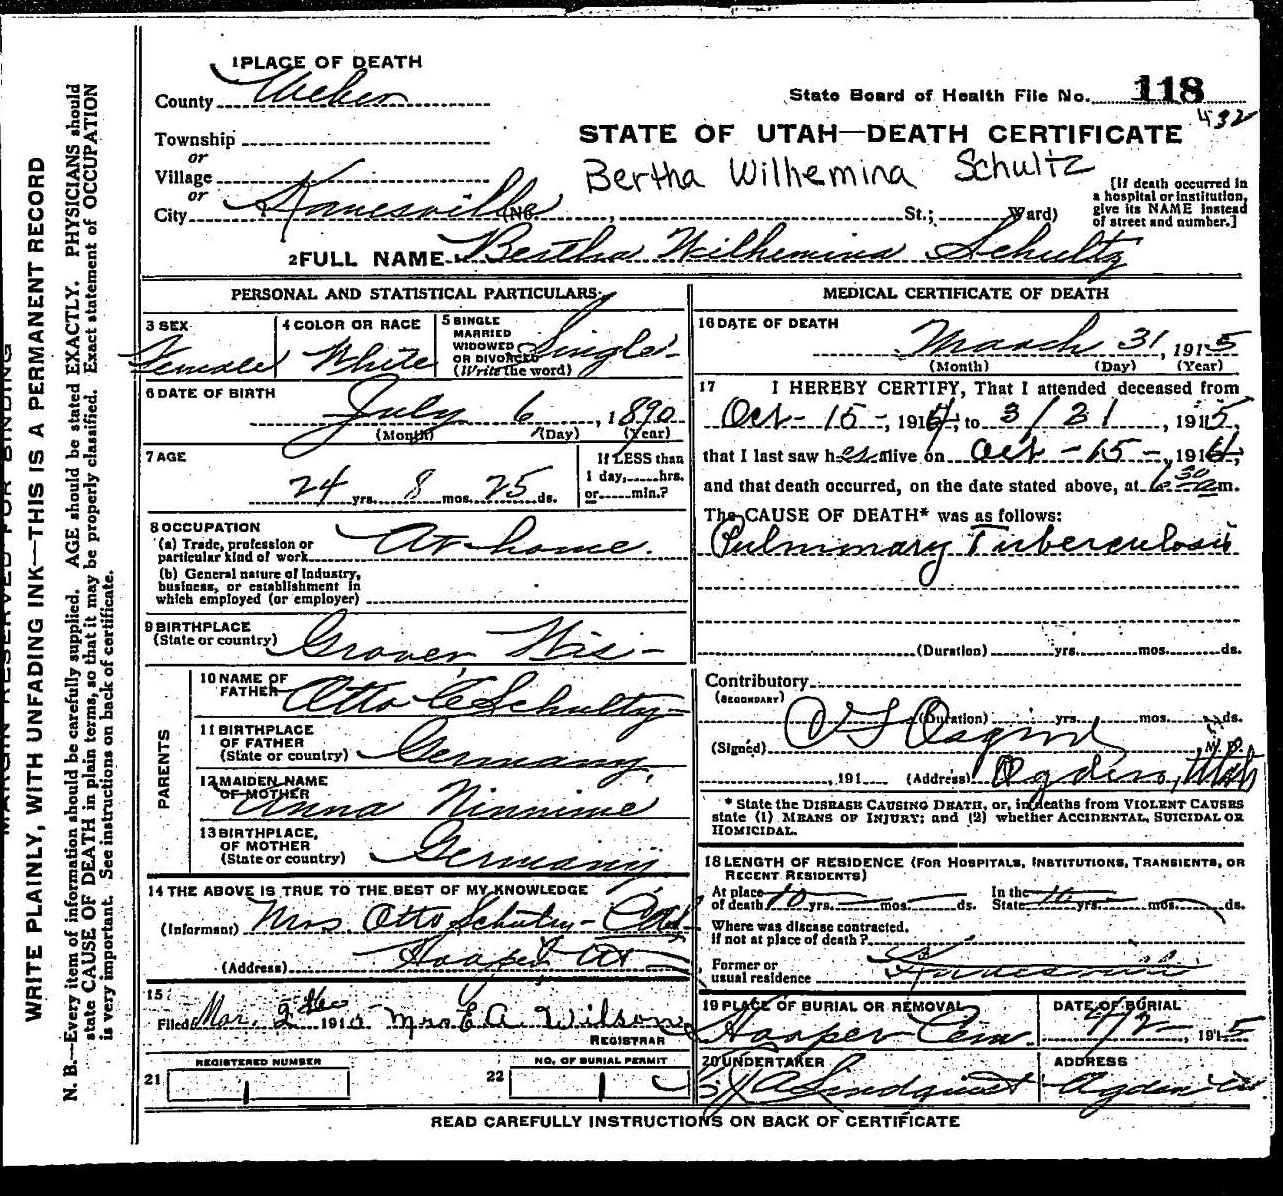 MARGIN RESERVED FOR BINDING
WRITE PLAINLY, WITH UNFADING INK—THIS IS A PERMANENT RECORD
N. B.—Every item of information should be carefully supplied. AGE should be stated EXACTLY. PHYSICIANS should
state CAUSE OF DEATH in plain terms, so that it may be properly classified. Exact statement of OCCUPATION
is very important. See instructions on back of certificate.
1 PLACE OF DEATH
County Weber
Township
or
Village
or
City Kanesville (No. , St.; Ward)
State Board of Health File No. 118
432
STATE OF UTAH—DEATH CERTIFICATE
Bertha Wilhemina Schultz
[If death occurred in
a hospital or institution,
give its NAME instead
of street and number.]
2 FULL NAME Bertha Wilhemina Schultz
PERSONAL AND STATISTICAL PARTICULARS
3 SEX
Female
4 COLOR OR RACE
White
5 SINGLE
MARRIED
WIDOWED
OR DIVORCED
(Write the word)
Single
6 DATE OF BIRTH
July 6, 1890
(Month) (Day) (Year)
7 AGE
24 yrs. 8 mos. 25 ds.
If LESS than
1 day, hrs.
or min.?
8 OCCUPATION
(a) Trade, profession or
particular kind of work At home.
(b) General nature of Industry,
business, or establishment in
which employed (or employer)
9 BIRTHPLACE
(State or country) Grover Wis -
PARENTS
10 NAME OF
FATHER Otto C Schultz
11 BIRTHPLACE
OF FATHER
(State or country) Germany
12 MAIDEN NAME
OF MOTHER
Anna
13 BIRTHPLACE,
OF MOTHER
(State or country) Germany
14 THE ABOVE IS TRUE TO THE BEST OF MY KNOWLEDGE
(Informant) Mrs. Otto Schultz
(Address) Hooper Ut
15
Filed Mar. 1915 Mrs E A Wilson
REGISTRAR
REGISTERED NUMBER
21 1
NO. OF BURIAL PERMIT
22 1
MEDICAL CERTIFICATE OF DEATH
16 DATE OF DEATH
March 31, 1915
(Month) (Day) (Year)
17 I HEREBY CERTIFY, That I attended deceased from
Oct - 15 -, 1914, to 3/31, 1915,
that I last saw her alive on Oct - 15 -, 1914,
and that death occurred, on the date stated above, at 6 30 a m.
The CAUSE OF DEATH* was as follows:
Pulmonary Tuberculosis
(Duration) yrs. mos. ds.
Contributory
(SECONDARY)
(Duration) yrs. mos. ds.
(Signed) Osgood, M. D.
, 191 (Address) Ogden, Utah
* State the DISEASE CAUSING DEATH, or, in deaths from VIOLENT CAUSES
state (1) MEANS OF INJURY; and (2) whether ACCIDENTAL, SUICIDAL OR
HOMICIDAL.
18 LENGTH OF RESIDENCE (FOR HOSPITALS, INSTITUTIONS, TRANSIENTS, OR
RECENT RESIDENTS)
At place
of death 10 yrs. mos. ds.
In the
State 10 yrs. mos. ds.
Where was disease contracted.
if not at place of death?
Former or
usual residence Kanesville
19 PLACE OF BURIAL OR REMOVAL
Hooper Cem.
DATE OF BURIAL
4/2 - 1915
20 UNDERTAKER
J A Lindquist
ADDRESS
Ogden Ut
READ CAREFULLY INSTRUCTIONS ON BACK OF CERTIFICATE